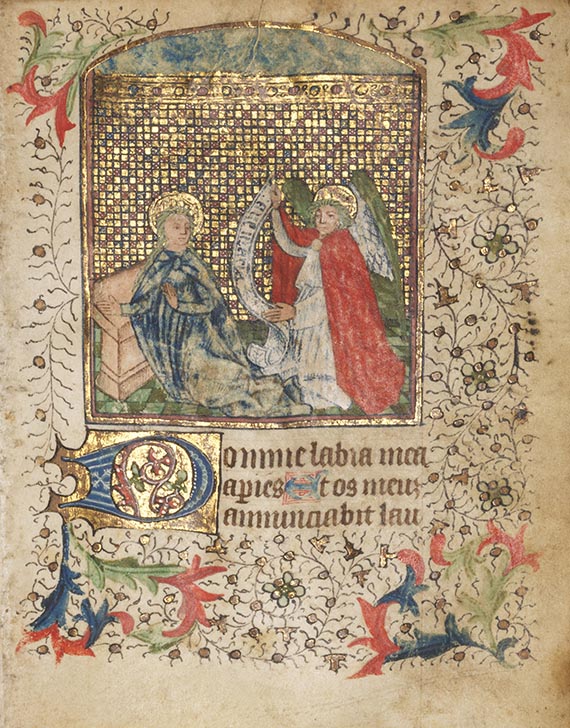 Domine labia mea
aꝑies Et os meuz
annunciabit lau